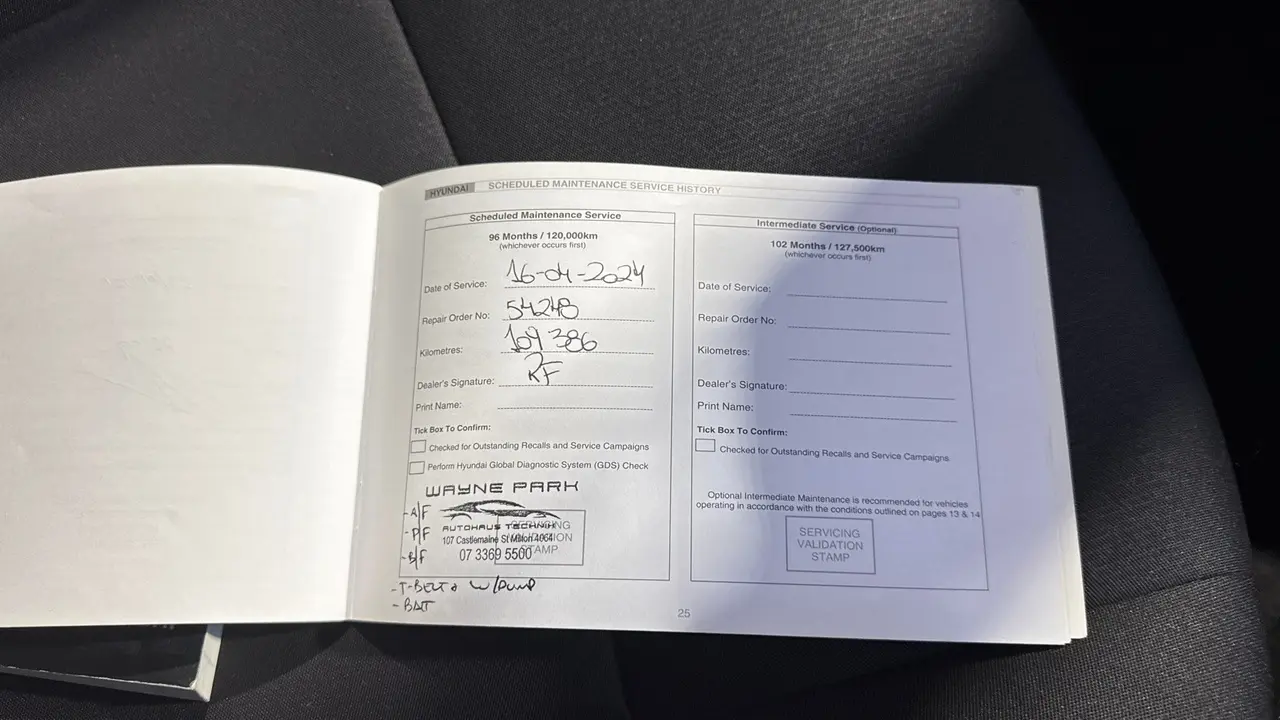 HYUNDAI SCHEDULED MAINTENANCE SERVICE HISTORY
Scheduled Maintenance Service
96 Months / 120,000km
(whichever occurs first)
Date of Service: 16-04-2024
Repair Order No: 54248
Kilometres: 109 386
Dealer's Signature: RF
Print Name:
Tick Box To Confirm:
Checked for Outstanding Recalls and Service Campaigns
Perform Hyundai Global Diagnostic System (GDS) Check
WAYNE PARK
- A/F
- P/F
- B/F
AUTOHAUS TECHNIK
107 Castlemaine St Milton 4064
07 3369 5500
SERVICING
VALIDATION
STAMP
- T-BELT & W/PUMP
- BATT
Intermediate Service (Optional)
102 Months / 127,500km
(whichever occurs first)
Date of Service:
Repair Order No:
Kilometres:
Dealer's Signature:
Print Name:
Tick Box To Confirm:
Checked for Outstanding Recalls and Service Campaigns
Optional Intermediate Maintenance is recommended for vehicles
operating in accordance with the conditions outlined on pages 13 & 14
SERVICING
VALIDATION
STAMP
25